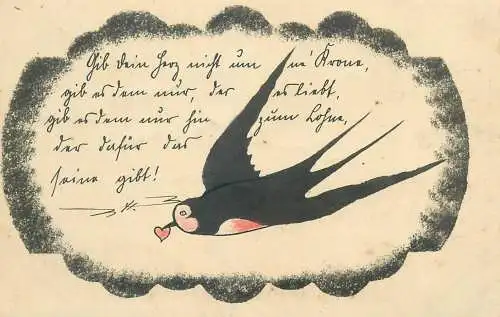 Gib dein Herz nicht um 'ne Krone,
gib es dem nur, der es liebt,
gib es dem nur hin zum Lohne,
der dafür das
seine gibt!